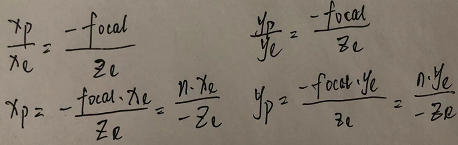 xp/xe = -focal/ze    yp/ye = -focal/ze
xp = -focal·xe/ze = n·xe/-ze    yp = -focal·ye/ze = n·ye/-ze